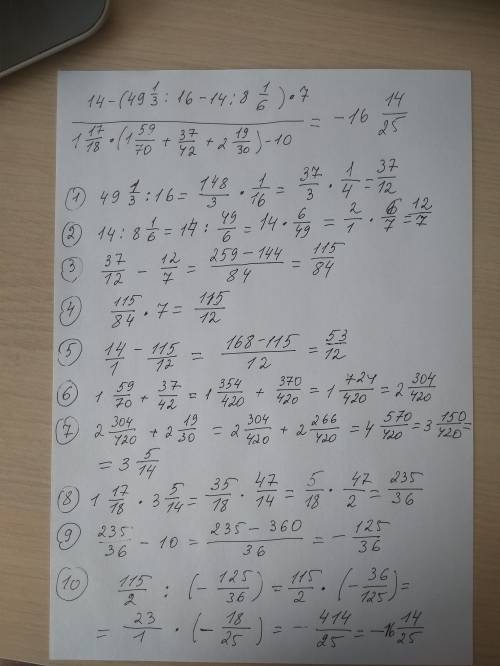 14-(49 1/3 : 16 - 14 : 8 1/6) · 7
1 17/18 · (1 59/70 + 37/42 + 2 19/30) - 10 = -16 14/25
① 49 1/3 : 16 = 148/3 · 1/16 = 37/3 · 1/4 = 37/12
② 14 : 8 1/6 = 14 : 49/6 = 14 · 6/49 = 2/1 · 6/7 = 12/7
③ 37/12 - 12/7 = 259-144/84 = 115/84
④ 115/84 · 7 = 115/12
⑤ 14/1 - 115/12 = 168-115/12 = 53/12
⑥ 1 59/70 + 37/42 = 1 354/420 + 370/420 = 1 724/420 = 2 304/420
⑦ 2 304/420 + 2 19/30 = 2 304/420 + 2 266/420 = 4 570/420 = 3 150/420 =
= 3 5/14
⑧ 1 17/18 · 3 5/14 = 35/18 · 47/14 = 5/18 · 47/2 = 235/36
⑨ 235/36 - 10 = 235-360/36 = - 125/36
⑩ 115/2 : (- 125/36) = 115/2 · (- 36/125) =
= 23/1 · (- 18/25) = - 414/25 = -16 14/25